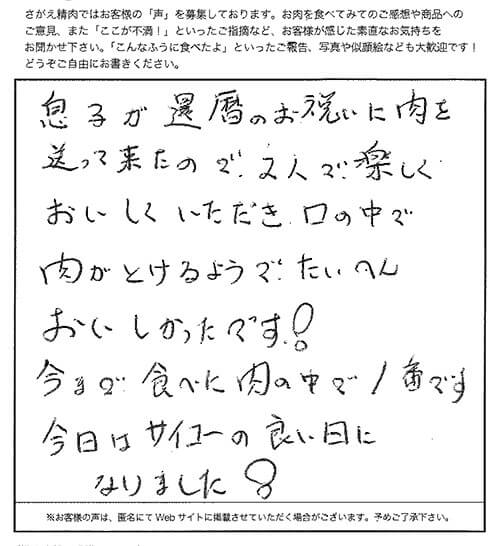 さがえ精肉ではお客様の「声」を募集しております。お肉を食べてみてのご感想や商品への
ご意見、また「ここが不満！」といったご指摘など、お客様が感じた素直なお気持ちを
お聞かせ下さい。「こんなふうに食べたよ」といったご報告、写真や似顔絵なども大歓迎です！
どうぞご自由にお書きください。
息子が還暦のお祝いに肉を
送って来たので、2人で楽しく
おいしくいただき、口の中で
肉がとけるようで、たいへん
おいしかったです！
今まで食べた肉の中で1番です
今日はサイコーの良い日に
なりました！
※お客様の声は、匿名にてWebサイトに掲載させていただく場合がございます。予めご了承下さい。